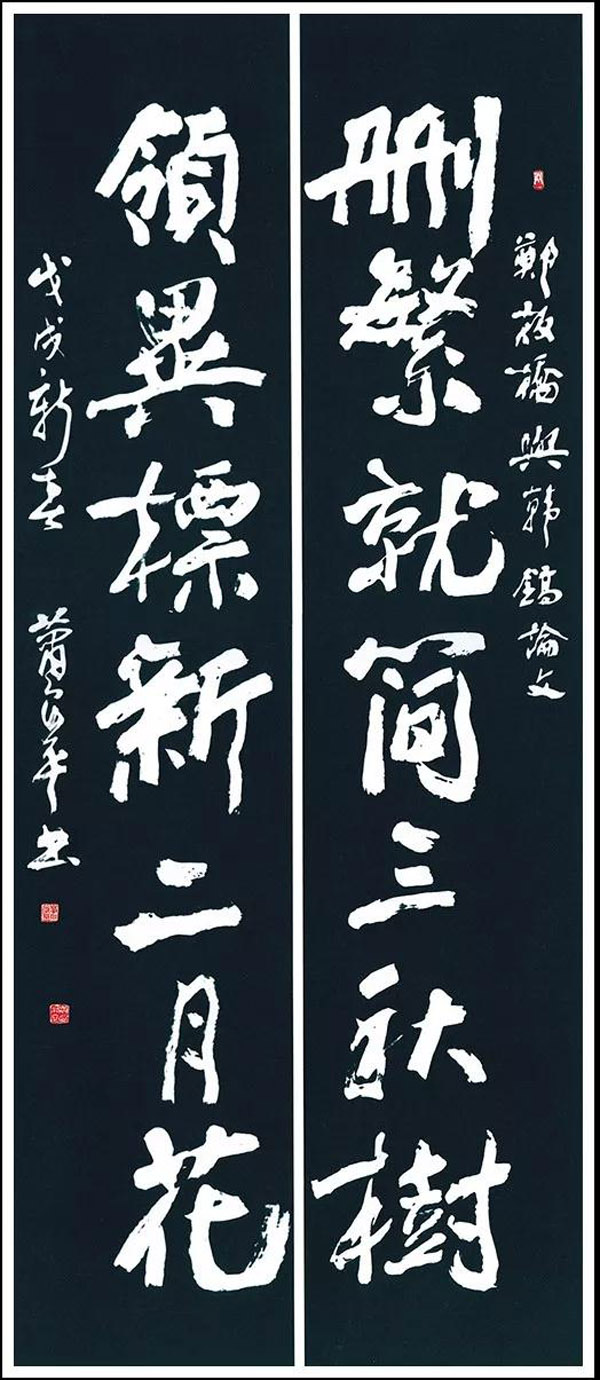 鄭板橋與韓鎬論文
删繁就簡三秋樹
領異標新二月花
戊戌新春 蕭 華書